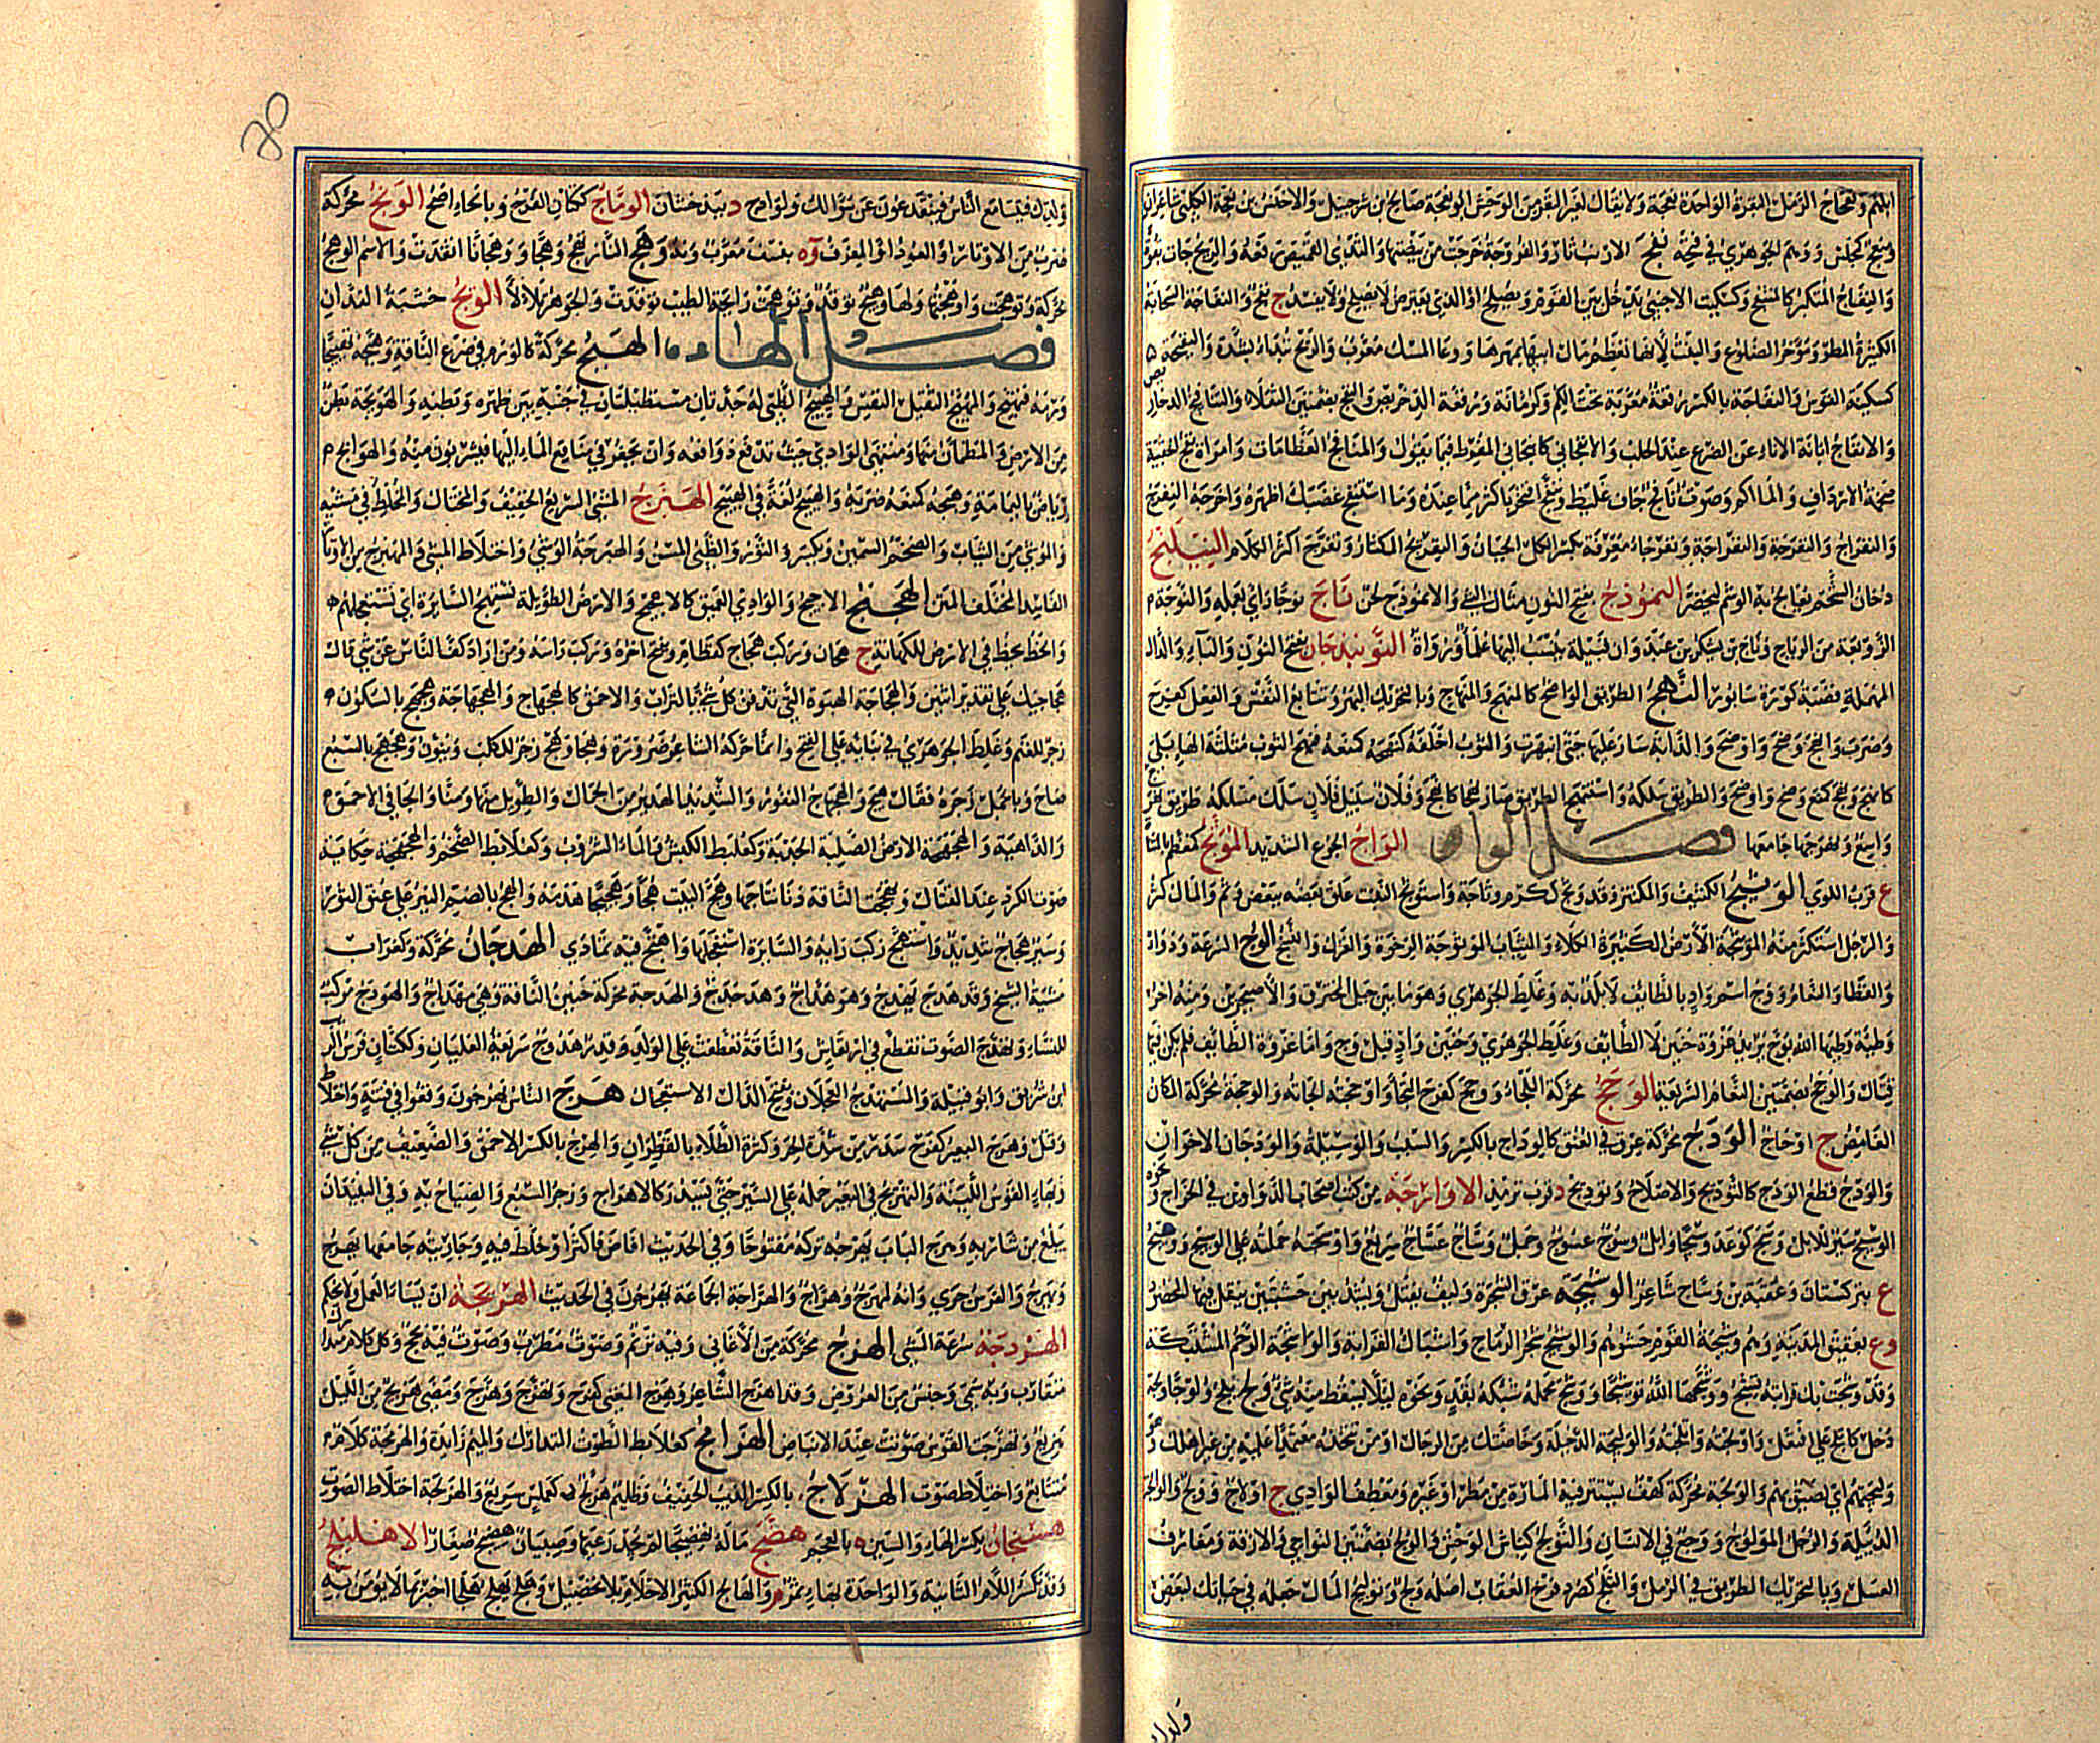 ونعاج الرمل البقرة الواحدة نعجة ولا يقال لغير البقر من الوحش وابو نعجة صالح بن شرحبيل والاخنس بن نعجة الكلبي شاعران
ومنعج كمجلس ووهم الجوهري في فتحه نفج الارنب ثار والفروجة خرجت من بيضتها والثدي القميص رفعه والريح جات بقوة
والنفاج المتكبر كالمنتفج وكسكيت الاجنبي يدخل بين القوم ويصلح او الذي يعترض لا يصلح ولا يفسد ج نفج والنفاجة السحابة
الكثيرة المطر ومؤخر الضلوع والبنت لانها تعظم مال ابيها بمهرها ووعاء المسك معرب والريح تبدأ بشدة والنفيجة
كسفينة القوس والنفاجة بالكسر رقعة مربعة تحت الكم وكرمانة ورقعة الدخريص والنفج بضمتين الثقلاء
والانفاج ابانة الاناء عن الضرع عند الحلب والانفجاني كانبجاني المفرط فيما يقول والمنافج العظامات وامراة نفج الحقيبة
ضخمة الارداف والماكم وصوت نافج جاف غليظ ونفاج
والنفراج والنفرجة والنفراجة ونفرجاء معرفة بكسر الكل الجبان والنفريج المكثار ونفرج اكثر الكلام النيلنج
دخان الشحم يعالج به الوشم ليخضر النموذج بفتح النون مثال الشي والانموذج لحن ناج نوجا راءى بعمله والنوجة
الزوبعة من الرياح وناج بن يشكر بن عدوان قبيلة ينسب اليها علماء ورواة النوبندجان بفتح النون والباء والدال
المهملة قصبة كورة سابور النهج الطريق الواضح كالمنهج والمنهاج وبالتحريك البهر وتتابع النفس والفعل كفرح
وضرب وانهج وضح واوضح والدابة سار عليها حتى انبهرت والثوب اخلقه كنهجه كمنعه فنهج الثوب مثلثة الهاء بلي
كانهج ونهج كمنع وضح واوضح والطريق سلكه واستنهج الطريق صار نهجا كانهج وفلان سبيل فلان سلك مسلكه
واسع ونهرجها جامعها فصل الواو الواج الجوع الشديد الموبج كمعظم
ع قرب اللوى الوثيج الكثيف والمكتنز وقد وثج ككرم وثاجة واستوثج النبت علق بعضه ببعض وتم والمال كثر
والرجل استكثر منه الموتثجة الارض الكثيرة الكلاء والثياب الموثوجة الرخوة الغزل والنسج الوج السرعة ودواء
والقطا والنعام ووج اسم واد بالطائف لا بلد به وغلط الجوهري وهو ما بين جبل المحترق والاحيحرين ومنه اخر
وطئة وطئها الله بوج يريد غزوة حنين لا الطائف وغلط الجوهري وحنين واد قبل وج واما غزوة الطائف فلم يكن فيها
قتال والوج بضمتين النعام السريعة الوحج محركة الملجاء ووحج كفرح التجا واوحجته الجاته والوحجة محركة المكان
الغامض ج اوحاج الودج محركة عرق في العنق كالوداج بالكسر والسبب والوسيلة والودجان الاخوان
والودج قطع الودج كالتوديج والاصلاح وتوديج د قرب ترمذ الاوارجة من كتب اصحاب الدواوين في الخراج ونحوه
الوسيج سير للابل وسج كوعد وسجا وابل وسوج عسوج وجمل وساج عساج سريع واوسجته حملته على الوسيج ووسيج
ع بتركستان وعقبة بن وساج شاعر الوشيجة عرق الشجرة وليف يفتل ويشد بين خشبتين ينقل فيها المحصود
وع بعقيق المدينة وهم وشيجة القوم حشوهم والوشيج شجر الرماح واشتباك القرابة والواشجة الرحم المشتبكة
وقد وشجت بك قرابته تشج ووشجها الله توشيجا ووشج محمله شبكه بقد ونحوه ليلا يسقط منه شي ولج يلج ولوجا ولجة
دخل كاتلج على افتعل واولجته واتلجته والوليجة الدخيلة وخاصتك من الرجال او من تتخذه معتمدا عليه من غير اهلك
وليجتهم اي لصيق بهم والولجة محركة كهف تستتر فيه المارة من مطر او غيره ومعطف الوادي ج اولاج وولج والولاج
الدبيلة والرجل المولوج ووجع في الانسان والتولج كناس الوحش والولج بضمتين النواحي والازقة ومغارف
العسل وبالتحريك الطريق في الرمل والتلج كصرد فرخ العقاب اصله ولج وتوليج المال جعله في حياتك لبعض
ولدك
ولدك فيتسامع الناس فينقدعون عن سؤالك ولوالج د ببذخشان الوماج ككتان الفرج وبالحاء اصح الونج محركة
ضرب من الاوتار او العود او المعزف وة بنسف معرب ونه وهج النار تهج وهجا ووهجانا اتقدت والاسم الوهج
محركة وتوهجت واوهجتها ولها وهيج توقد وتوهجت رائحة الطيب توقدت والجوهر تلالا الويج خشبة الفدان
فصل الهاء الهبج محركة كالورم في ضرع الناقة وهبجه تهبيجا
ورمه فتهبج والمهبج الثقيل النفس والهبيج الظبي له جدتان مستطيلتان في جنبيه بين ظهره وبطنه والهوبجة بطن
من الارض والمطمان منها ومنتهى الوادي حيث تدفع دوافعه وان يحفر في مناقع الماء اليها فيشربون منه والهوابج
رياض باليمامة وهبجه كمنعه ضربه والهبيج لغة في الهبيخ الهبرج المشي السريع الخفيف والمختال والمخلط في مشيه
والموشي من الثياب والضخم السمين ويكسر والثور والظبي المسن والهبرجة الوشي واختلاط المشي والمهبرج من الاوتار
الفاسد المختلف المتن الهجيج الاجيج والوادي العميق كالاهجيج والارض الطويلة تستهج السائرة اي تستعجلهم
والخط يخط في الارض للكهانة ج هجان وركب هجاج كقطام ويفتح اخره ركب راسه ومن اراد كف الناس عن شي قال
هجاجيك على تقدير اثنين والهجاجة الهبوة التي تدفن كل شي بالتراب والاحمق كالهجهاج والهجهاجة وهجهج بالسكون
زجر للغنم وغلط الجوهري في بنائه على الفتح وانما حركه الشاعر ضرورة وهجا وهج زجر للكلب وينون وهجهج بالسبع
صاح وبالجمل زجره فقال هيج والهجهاج النفور والشديد الهدير من الجمال والطويل منها ومنا والجافي الاحمق
والداهية والهجهجة الارض الصلبة الجدبة وكعلبط الكبش والماء الشروب وكعلابط الضخم والهجهجة حكاية
صوت الكرد عند القتال وتهجهجت الناقة دنا نتاجها وهج البيت هجا وهجيجا هدمه والهج بالضم النير على عنق الثور
وسير هجاج شديد واستهج ركب رايه والسائرة استعجلها واهتج فيه تمادى الهدجان محركة وكغراب
مشية الشيخ وقد هدج يهدج وهو هداج وهدجدج والهدجة محركة حنين الناقة وهي مهداج والهودج مركب
للنساء وتهدج الصوت تقطع في ارتعاش والناقة تعطفت على الولد وقدر هدوج سريعة الغليان وككتان فرس الريب
ابن شريق وابو قبيلة والمستهدج العجلان وبفتح الدال الاستعجال هرج الناس يهرجون وقعوا في فتنة واختلاط
وقتل وهرج البعير كفرح سدر من شدة الحر وكثرة الطلاء بالقطران والهرج بالكسر الاحمق والضعيف من كل شي
وبهاء القوس اللينة والتهريج في البعير حمله على السير حتى يسدر كالاهراج وزجر السبع والصياح به وفي النبيذ ان
يبلغ من شاربه وهرج الباب يهرجه تركه مفتوحا وفي الحديث افاض فاكثر او خلط فيه وجاريته جامعها يهرج
ويهرج والفرس جرى وانه لمهرج وهراج والهراجة الجماعة يهرجون في الحديث الهربجة ان تساء العمل ولا تحكم
الهردجة سرعة المشي الهزج محركة من الاغاني وفيه ترنم وصوت مطرب وصوت فيه بحح وكل كلام متدارك
متقارب وبه سمي وجنس من العروض وقد اهزج الشاعر وهزج المغني كفرح وتهزج وهزج ومضى هزيج من الليل
هزيع وتهزجت القوس صوتت عند الانباض الهزامج كعلابط الصوت المتدارك والميم زائدة والهزمجة كلام
متتابع واختلاط صوت الهزلاج بالكسر الذئب الخفيف وظليم هزلج كعملس سريع والهزلجة اختلاط الصوت
هسنجان بكسر الهاء والسين ة بالعجم هضج ماله تهضيجا لم يجد رعيها وصبيان هضيج صغار الاهليلج
وقد تكسر اللام الثانية والواحدة بهاء ثمر م والهالج الكثير الاحلام بلا تحصيل وهلج يهلج هلجا اخبر بما لا يؤمن به